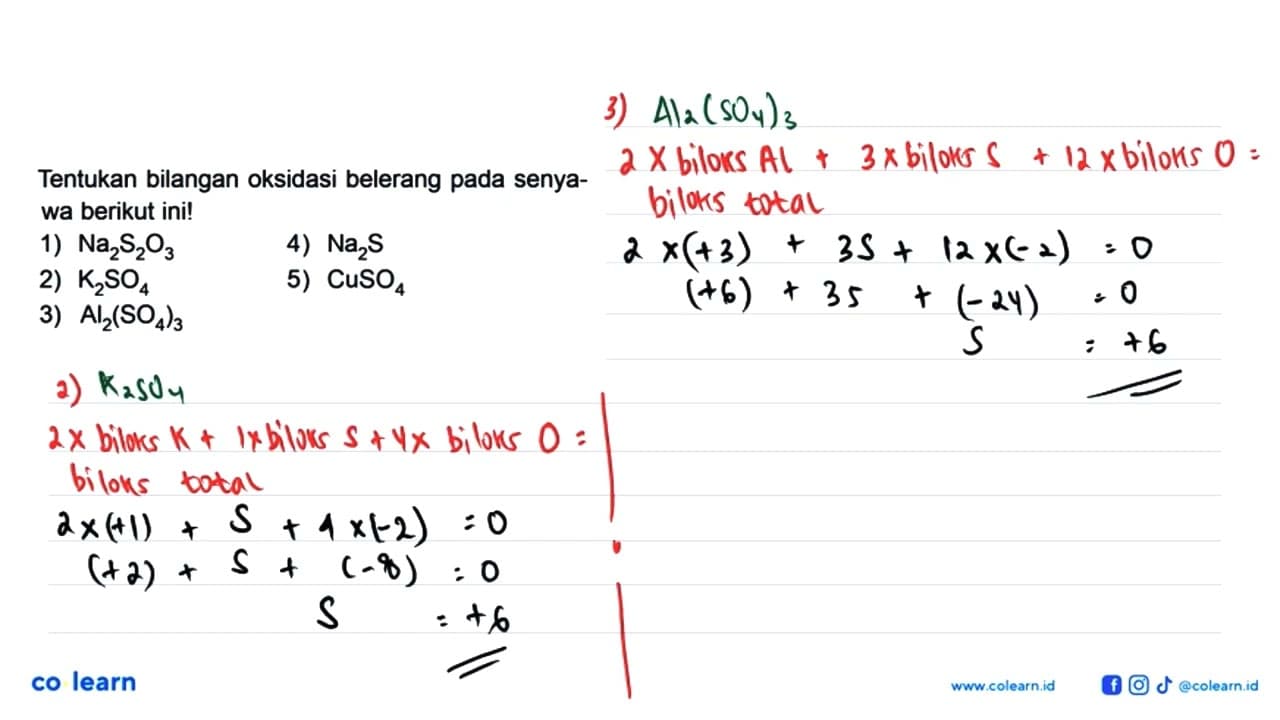 Tentukan bilangan oksidasi belerang pada senya-
wa berikut ini!
1) Na₂S₂O₃ 4) Na₂S
2) K₂SO₄ 5) CuSO₄
3) Al₂(SO₄)₃
2) K₂SO₄
2x biloks K + 1x biloks S + 4x biloks O =
biloks total
2x(+1) + S + 4x(-2) = 0
(+2) + S + (-8) = 0
S = +6
3) Al₂(SO₄)₃
2 x biloks Al + 3 x biloks S + 12 x biloks O =
biloks total
2 x(+3) + 3S + 12 x(-2) = 0
(+6) + 3S + (-24) = 0
S = +6
co learn
www.colearn.id @colearn.id